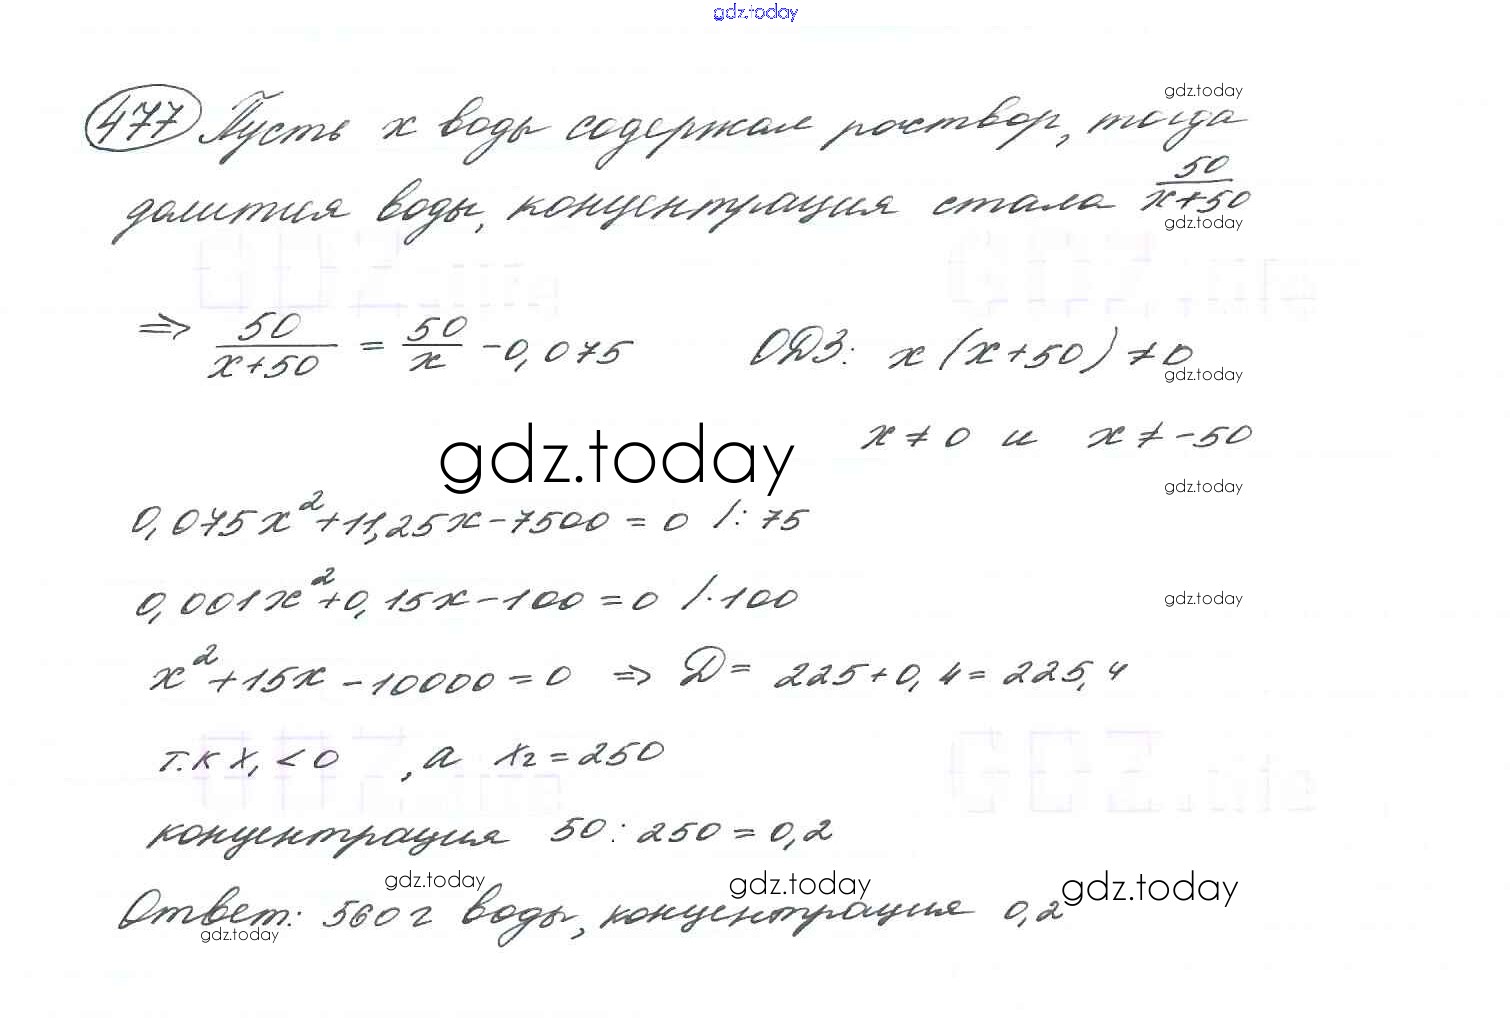 gdz.today
gdz.today
477 Пусть x воды содержал раствор, тогда
долития воды, концентрация стала 50/(x+50)
gdz.today
=> 50/(x+50) = 50/x - 0,075 ОДЗ: x(x+50) ≠ 0
gdz.today
x ≠ 0 и x ≠ -50
gdz.today
gdz.today
0,075x² + 11,25x - 7500 = 0 /: 75
0,001x² + 0,15x - 100 = 0 /·100
gdz.today
x² + 15x - 10000 = 0 => D = 225 + 0,4 = 225,4
т.к x₁ < 0, а x₂ = 250
концентрация 50 : 250 = 0,2
gdz.today gdz.today gdz.today
Ответ: 560 г воды, концентрация 0,2
gdz.today